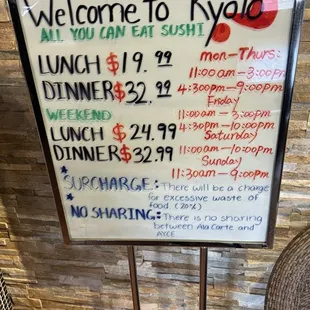 Welcome to Kyoto
ALL YOU CAN EAT SUSHI
LUNCH $19.99
DINNER $32.99
WEEKEND
LUNCH $24.99
DINNER $32.99
mon-Thurs:
11:00am-3:00pm
4:30pm-9:00pm
Friday
11:00am-3:00pm
4:30pm-10:00pm
Saturday
11:00am-10:00pm
Sunday
11:30am-9:00pm
*SURCHARGE: There will be a charge
for excessive waste of
food. (20%)
*NO SHARING: There is no sharing
between Ala Carte and
AYCE